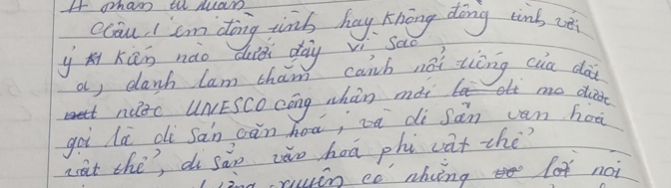 II phần tự luận
Câu 1 em đồng tình hay không đồng tình với
ý kiến nào dưới đây vì sao
a, danh lam thắm cảnh nổi tiếng của đất
nước UNESCO công nhận mới là di mo được
gọi là di sản căn hoá, và di sản van hoá
vật thể, di sản văn hoá phi vật thể
có những loi nói